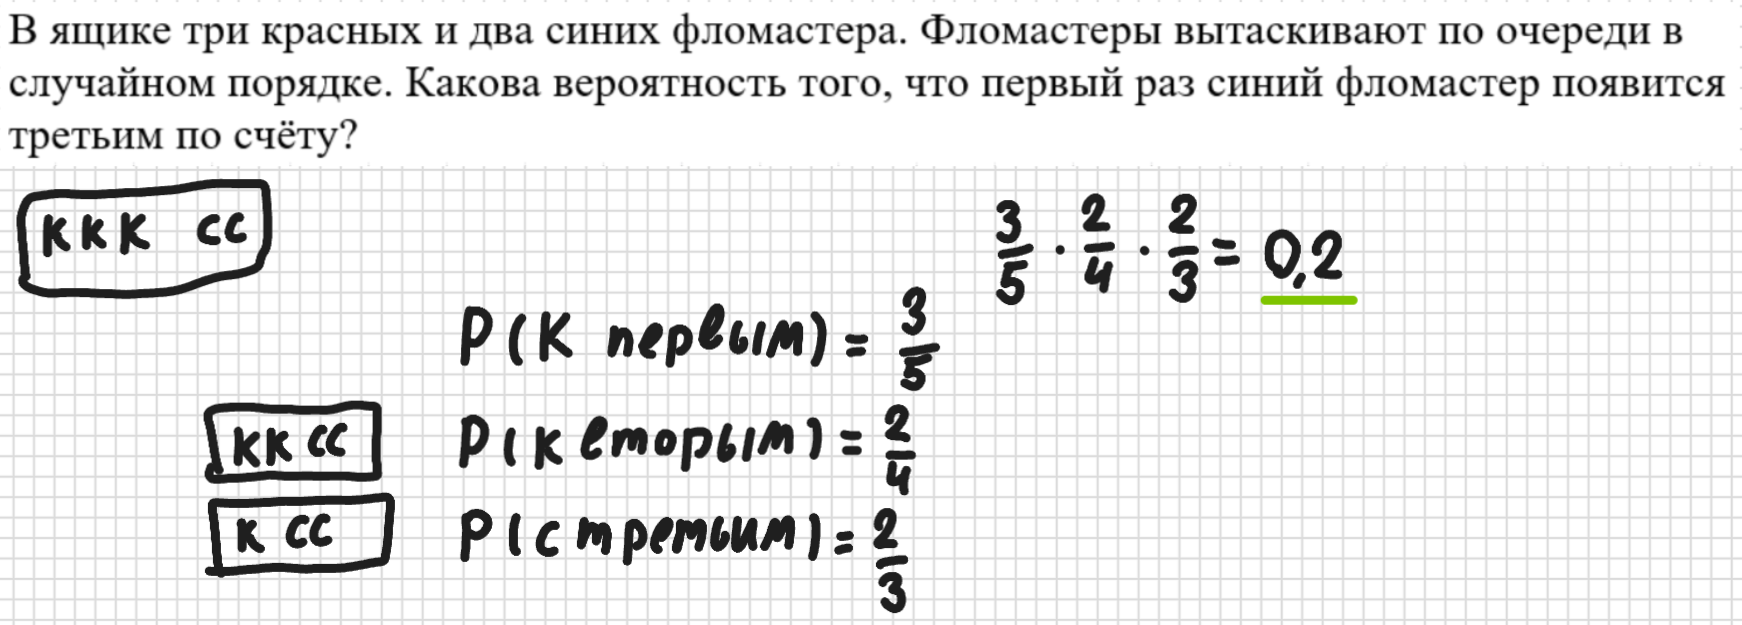 В ящике три красных и два синих фломастера. Фломастеры вытаскивают по очереди в
случайном порядке. Какова вероятность того, что первый раз синий фломастер появится
третьим по счёту?
К К К СС
3/5 · 2/4 · 2/3 = 0,2
P(К первым) = 3/5
КК СС
P(К вторым) = 2/4
К СС
P(С третьим) = 2/3